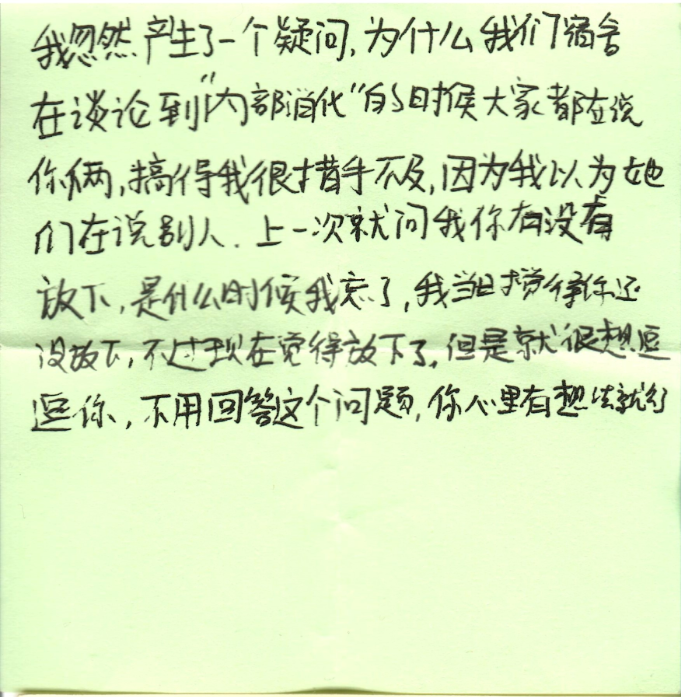 我忽然产生了一个疑问,为什么我们宿舍
在谈论到"内部消化"的时候大家都在说
你俩,搞得我很措手不及,因为我以为她
们在说别人.上一次就问我你有没有
放下,是什么时候我忘了,我当时觉得你还
没放下,不过现在觉得放下了.但是就很想逗
逗你,不用回答这个问题,你心里有想法就行